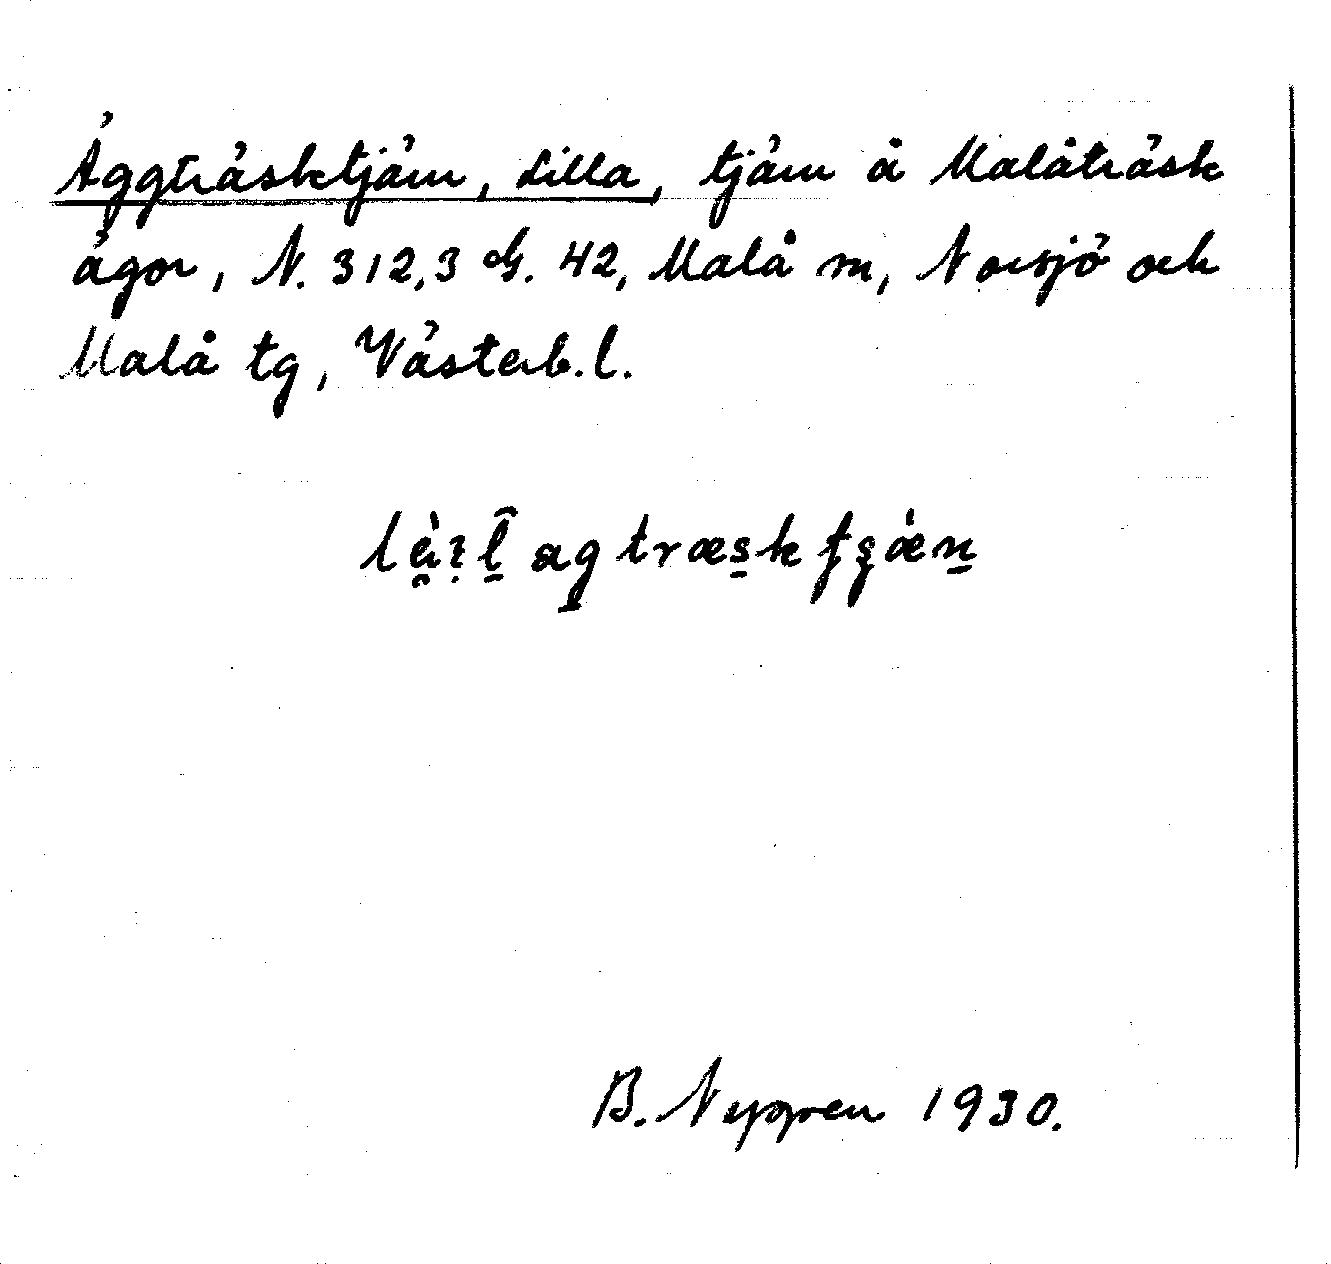 Äggträsktjärn, Lilla, tjärn å Malåträsk
ägor, N. 312,3 G. 42, Malå sn, Norsjö och
Malå tg, Västerb.l.
B. Nygren 1930.